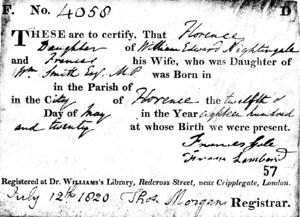 F. No. 4058 D
THESE are to certify, That Florence
Daughter of William Edward Nightingale
and Frances his Wife, who was Daughter of
Wm Smith Esq. M P was Born in
in the Parish of
in the City of Florence the twelfth of
Day of May in the Year eighteen hundred
and twenty at whose Birth we were present.
Frances Gale
57
Registered at Dr. WILLIAMS's Library, Redcross Street, near Cripplegate, London.
July 12th 1820 Thos. Morgan Registrar.